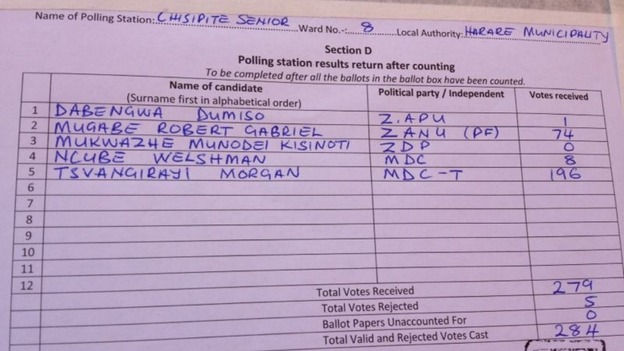 Name of Polling Station: CHISIPITE SENIOR Ward No.-: 8 Local Authority: HARARE MUNICIPALITY
Section D
Polling station results return after counting
To be completed after all the ballots in the ballot box have been counted.
Name of candidate (Surname first in alphabetical order) Political party / Independent Votes received
1 DABENGWA DUMISO Z.APU 1
2 MUGABE ROBERT GABRIEL ZANU (PF) 74
3 MUKWAZHE MUNODEI KISINOTI ZDP 0
4 NCUBE WELSHMAN MDC 8
5 TSVANGIRAYI MORGAN MDC-T 196
6
7
8
9
10
11
12 Total Votes Received 279
Total Votes Rejected 5
Ballot Papers Unaccounted For 0
Total Valid and Rejected Votes Cast 284